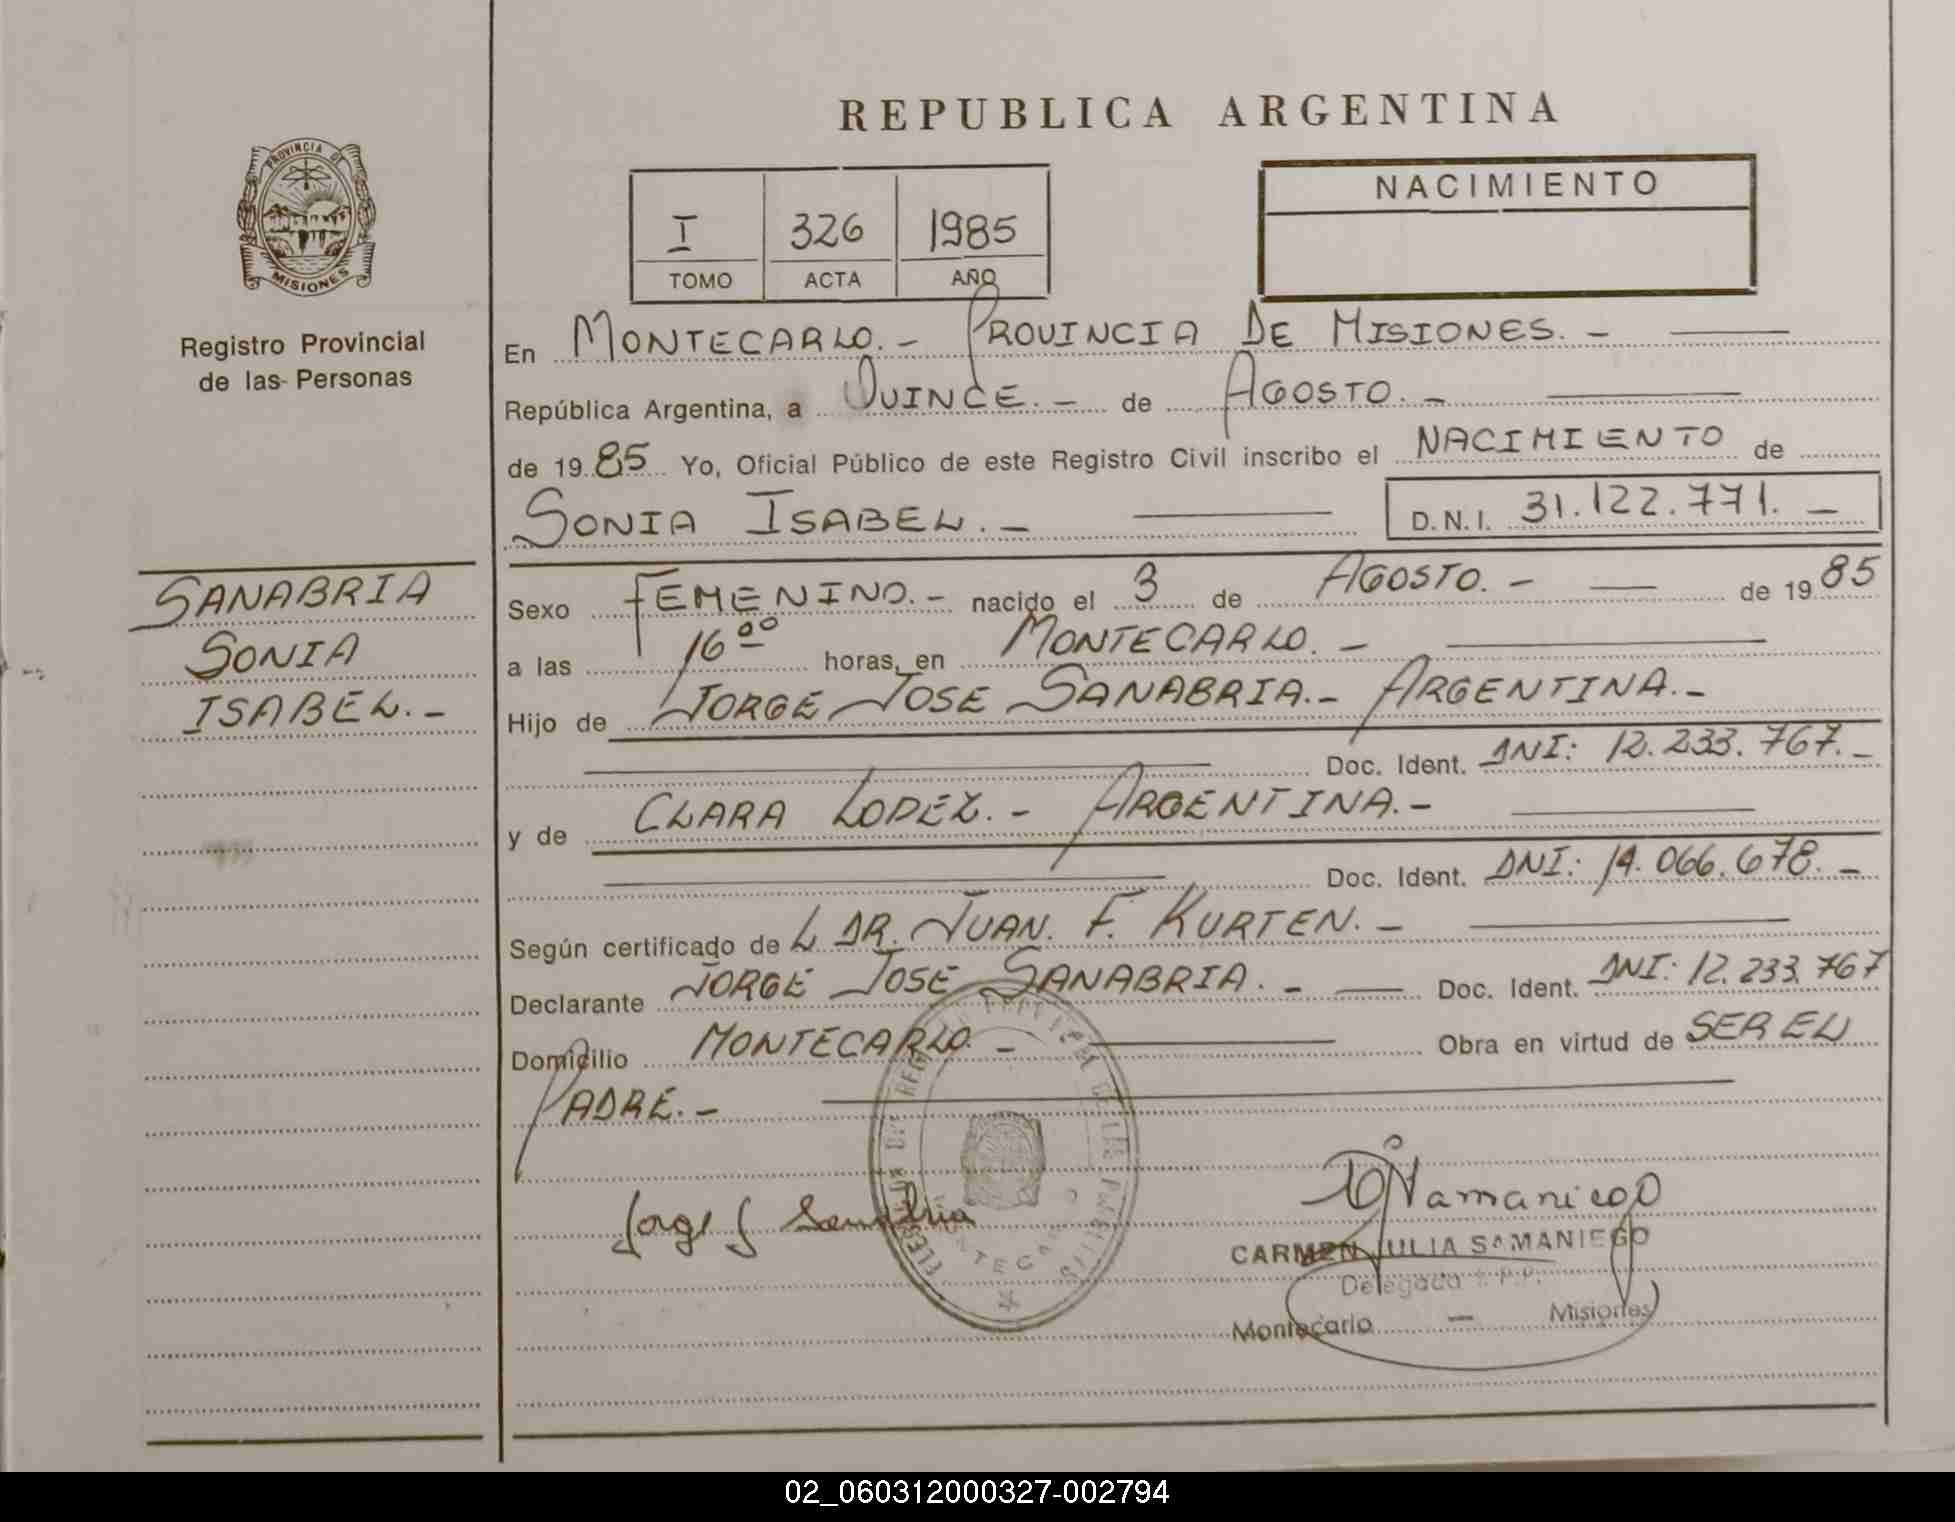 REPUBLICA ARGENTINA
PROVINCIA DE
MISIONES
Registro Provincial
de las Personas
I 326 1985
TOMO ACTA AÑO
NACIMIENTO
En MONTECARLO.- PROVINCIA DE MISIONES.-
República Argentina, a QUINCE.- de AGOSTO.-
de 1985 Yo, Oficial Público de este Registro Civil inscribo el NACIMIENTO de
SONIA ISABEL.- D.N.I. 31.122.771.-
SANABRIA
SONIA
ISABEL.-
Sexo FEMENINO.- nacido el 3 de AGOSTO.- de 1985
a las 16 00 horas, en MONTECARLO.-
Hijo de JORGE JOSE SANABRIA.- ARGENTINA.-
Doc. Ident. DNI: 12.233.767.-
y de CLARA LOPEZ.- ARGENTINA.-
Doc. Ident. DNI: 14.066.678.-
Según certificado de L DR. JUAN. F. KURTEN.-
Declarante JORGE JOSE SANABRIA.- Doc. Ident. DNI: 12.233.767
Domicilio MONTECARLO.- Obra en virtud de SER EL
PADRE.-
Jorge J Sanabria
CARMEN JULIA SAMANIEGO
Delegada R.P.P.
Montecarlo - Misiones
02_060312000327-002794